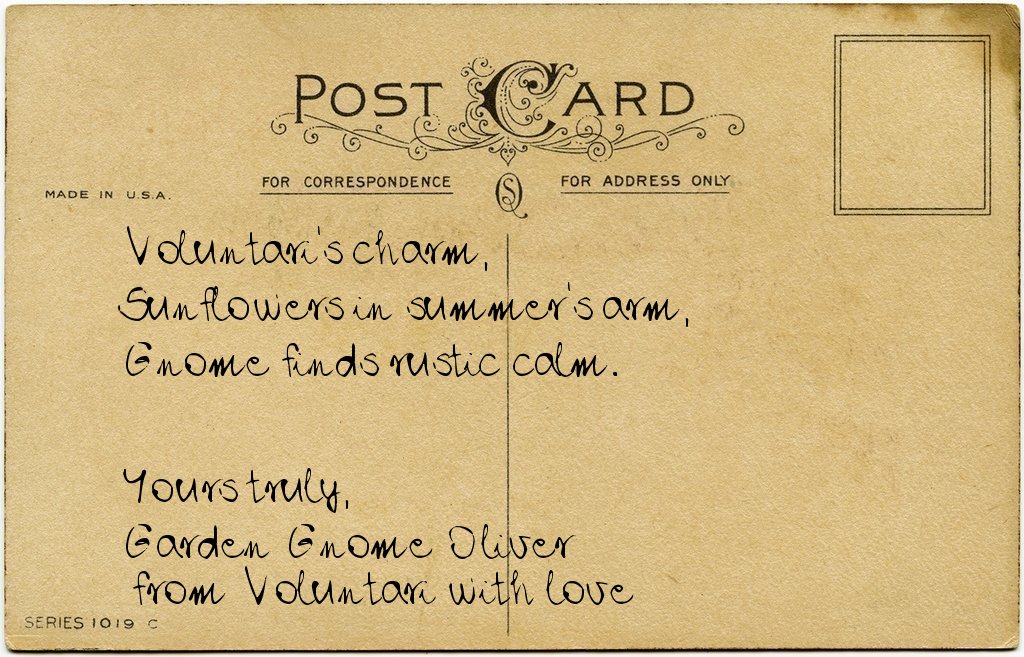 POST CARD
FOR CORRESPONDENCE
FOR ADDRESS ONLY
MADE IN U.S.A.
Voluntari's charm,
Sunflowers in summer's arm,
Gnome finds rustic calm.
Yours truly,
Garden Gnome Oliver
from Voluntari with love
SERIES 1019 C